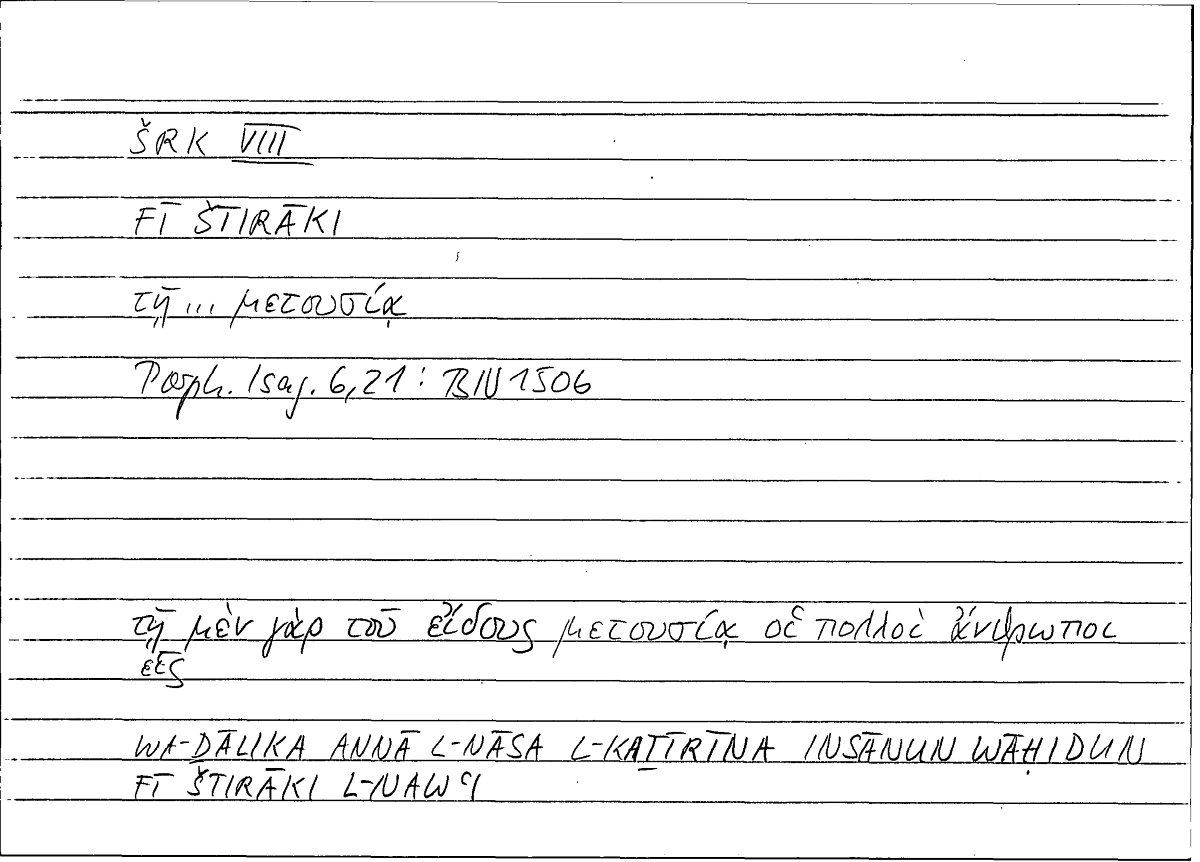 ŠRK VIII
FĪ ŠTIRĀKI
τῇ ... μετουσίᾳ
Porph. Isag. 6,21 : BIV 1506
τῇ μὲν γὰρ τοῦ εἴδους μετουσίᾳ οἱ πολλοὶ ἄνθρωποι
εἷς
WA-ḎĀLIKA ANNĀ L-NĀSA L-KAṮĪRĪNA INSĀNUN WĀḤIDUN
FĪ ŠTIRĀKI L-NAWʿI